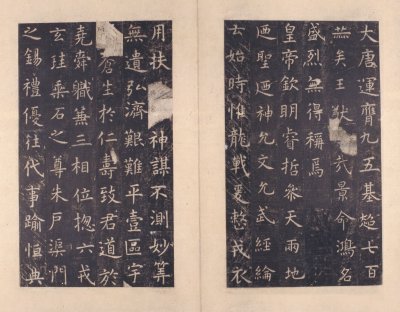 大唐運膺九五基超七百
矣王猷景命鴻名
盛烈無得稱焉
皇帝欽明睿哲叅天兩地
廼聖廼神允文允武經綸
云始時惟龍戰爰整戎衣
用扶神謀不測妙筭
無遺弘濟艱難平壹區宇
蒼生於仁壽致君道於
堯舜職兼三相位揔六戎
玄珪乘石之尊朱戶渠門
之錫禮優往代事踰恒典